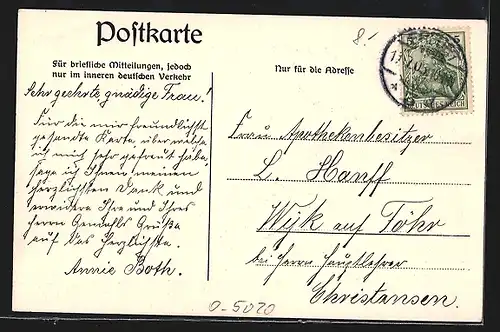 Postkarte
Für briefliche Mitteilungen, jedoch
nur im inneren deutschen Verkehr
Nur für die Adresse
8.-
Sehr geehrte gnädige Frau!
Für die mir freundlichst
gesandte Karte über welche
ich mich sehr gefreut habe,
sage ich Ihnen meinen
herzlichsten Dank und
erwidere Ihre und Ihres
Herrn Gemahls Grüße
auf das Herzlichste.
Annie Both.
Frau Apothekenbesitzer
L. Hanff
Wyk auf Föhr
bei Herrn Hauptlehrer
Christansen.
0-5020